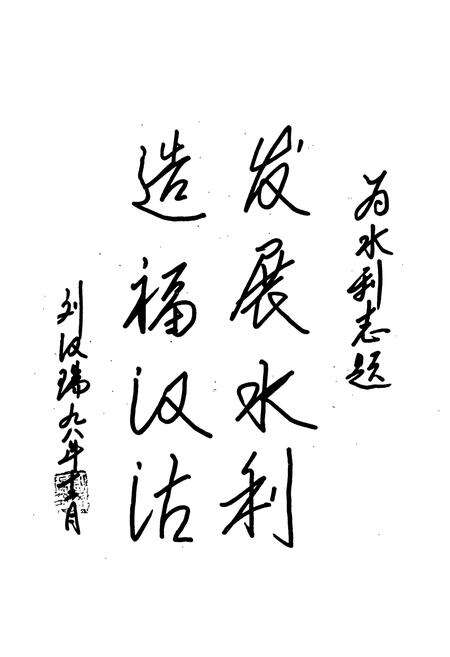 为水利志题
发展水利
造福汉沽
刘汉瑞九八年十月